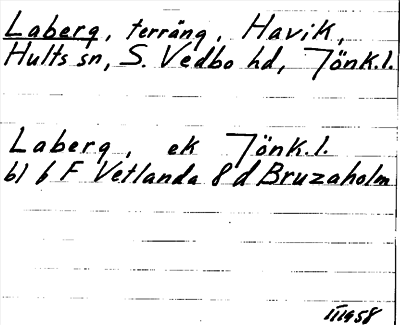 Laberg, terräng, Havik,
Hults sn, S. Vedbo hd, Jönk.l.
Laberg, ek Jönk.l.
bl 6 F Vetlanda 8 d Bruzaholm
III 1958